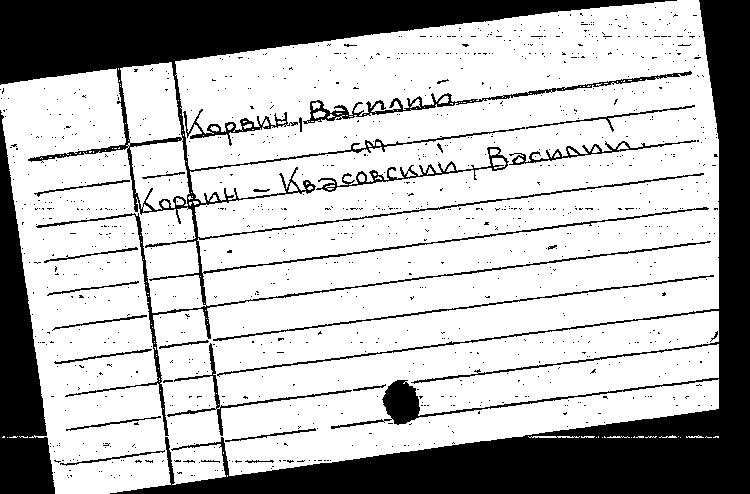 Корвин, Василий
см.
Корвин - Квасовский, Василий.